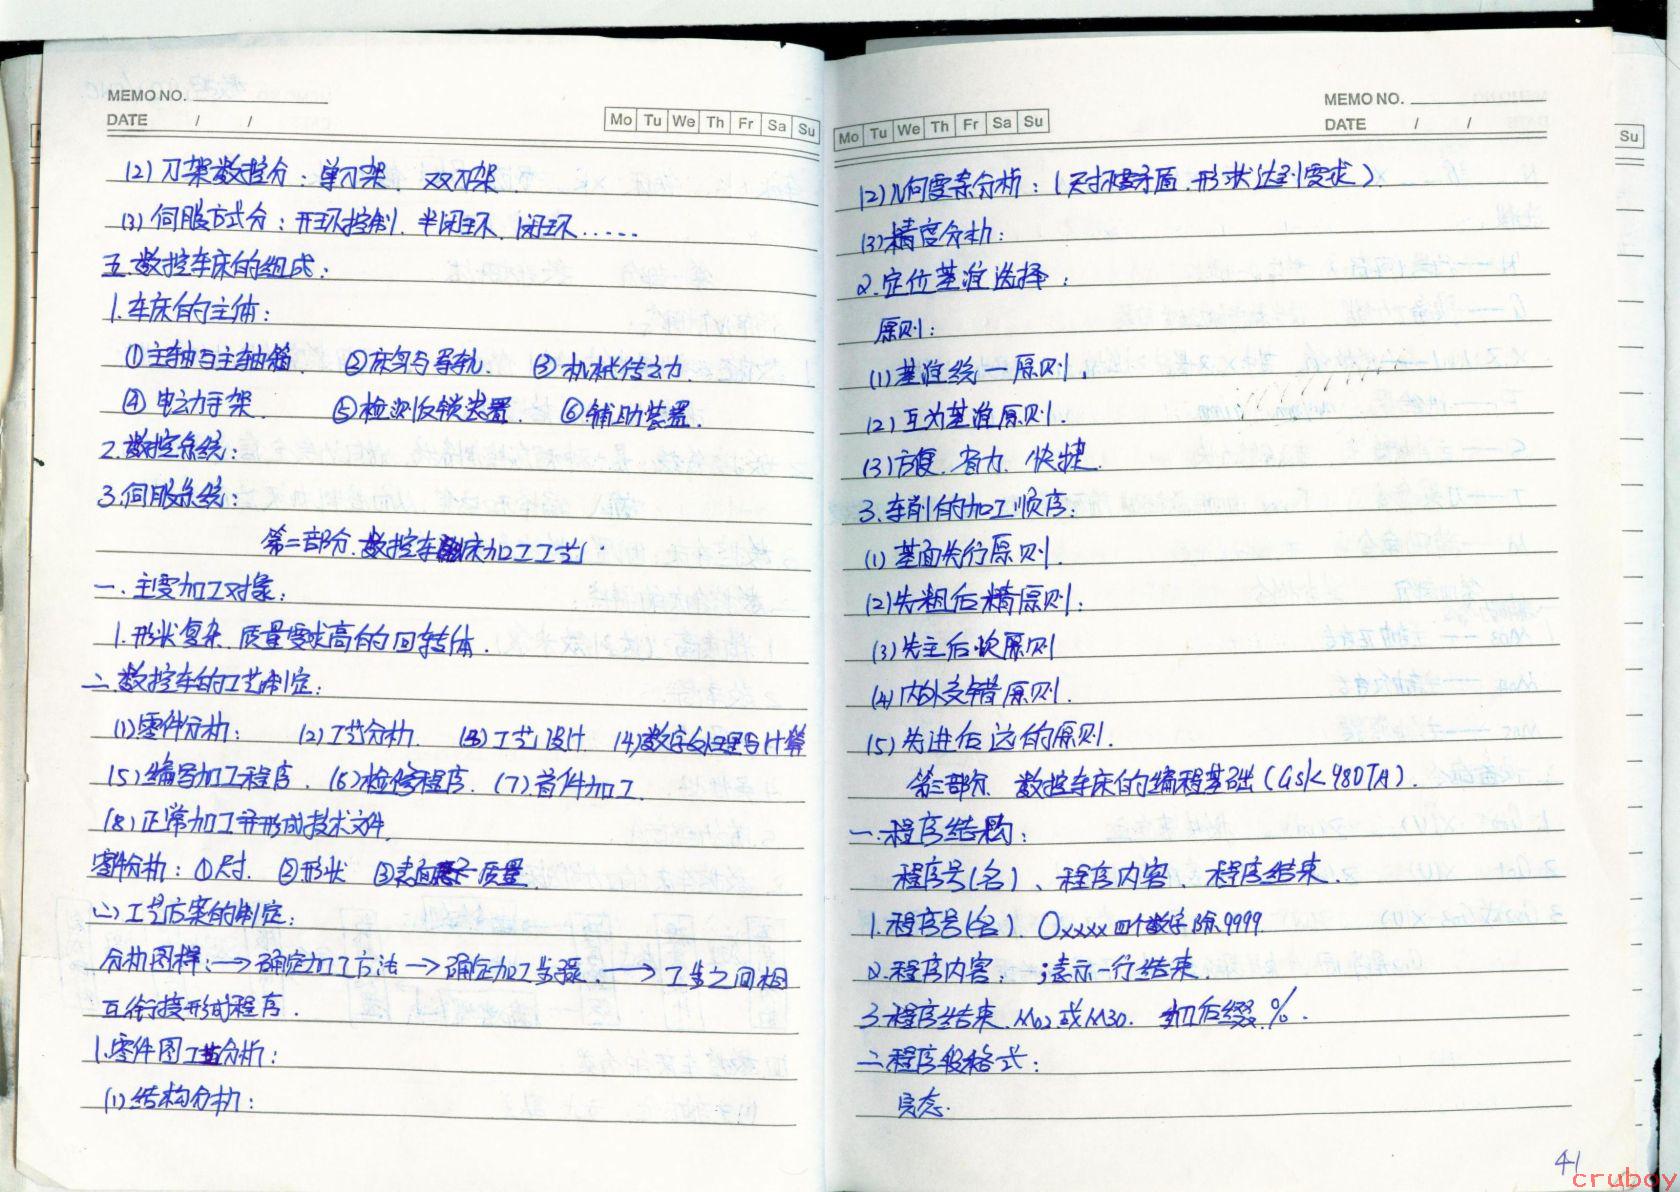 MEMO NO.
DATE / /
Mo Tu We Th Fr Sa Su
(2) 刀架数控分：单刀架 双刀架
(3) 伺服方式分：开环控制. 半闭环. 闭环......
五.数控车床的组成：
1.车床的主体：
①主轴与主轴箱 ②床身与导轨. ③机械传动力.
④电动手架. ⑤检测反锁装置. ⑥辅助装置.
2.数控系统：
3.伺服系统：
第二部分.数控车床加工工艺.
一.主要加工对象：
1.形状复杂.质量要求高的回转体.
二.数控车的工艺制定：
(1)零件分析： (2)工艺分析. (3)工艺设计. (4)数字处理与计算
(5)编写加工程序. (6)检修程序. (7)首件加工.
(8)正常加工并形成技术文件.
零件分析：①尺寸. ②形状 ③表面 质量.
(二)工艺方案的制定：
分析图样：→确定加工方法→确定加工步骤.→工步之间相
互衔接形成程序.
1.零件图工艺分析：
(1)结构分析：
MEMO NO.
DATE / /
Mo Tu We Th Fr Sa Su
(2)几何要素分析：(尺寸 矛盾.形状达到要求).
(3)精度分析：
2.定位基准选择：
原则：
(1)基准统一原则.
(2)互为基准原则.
(3)方便.省力.快捷.
3.车削的加工顺序：
(1)基面先行原则.
(2)先粗后精原则：
(3)先主后次原则
(4)内外交错原则.
(5)先进后远的原则.
第三部分. 数控车床的编程基础(Gsk980TA).
一.程序结构：
程序号(名)、程序内容、程序结束.
1.程序号(名). Oxxxx 四个数字 除9999.
2.程序内容： ;表示一行结束
3.程序结束.M02或M30. 加后缀%.
二.程序段格式：
41
cruboy
Su